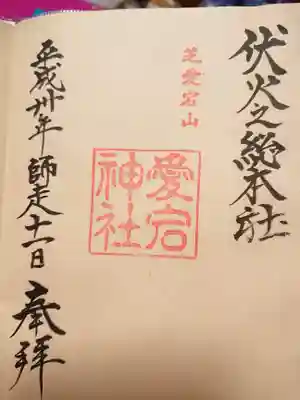 伏火之総本社
芝愛宕山
愛宕
神社
平成卅年師走十一日
奉拝